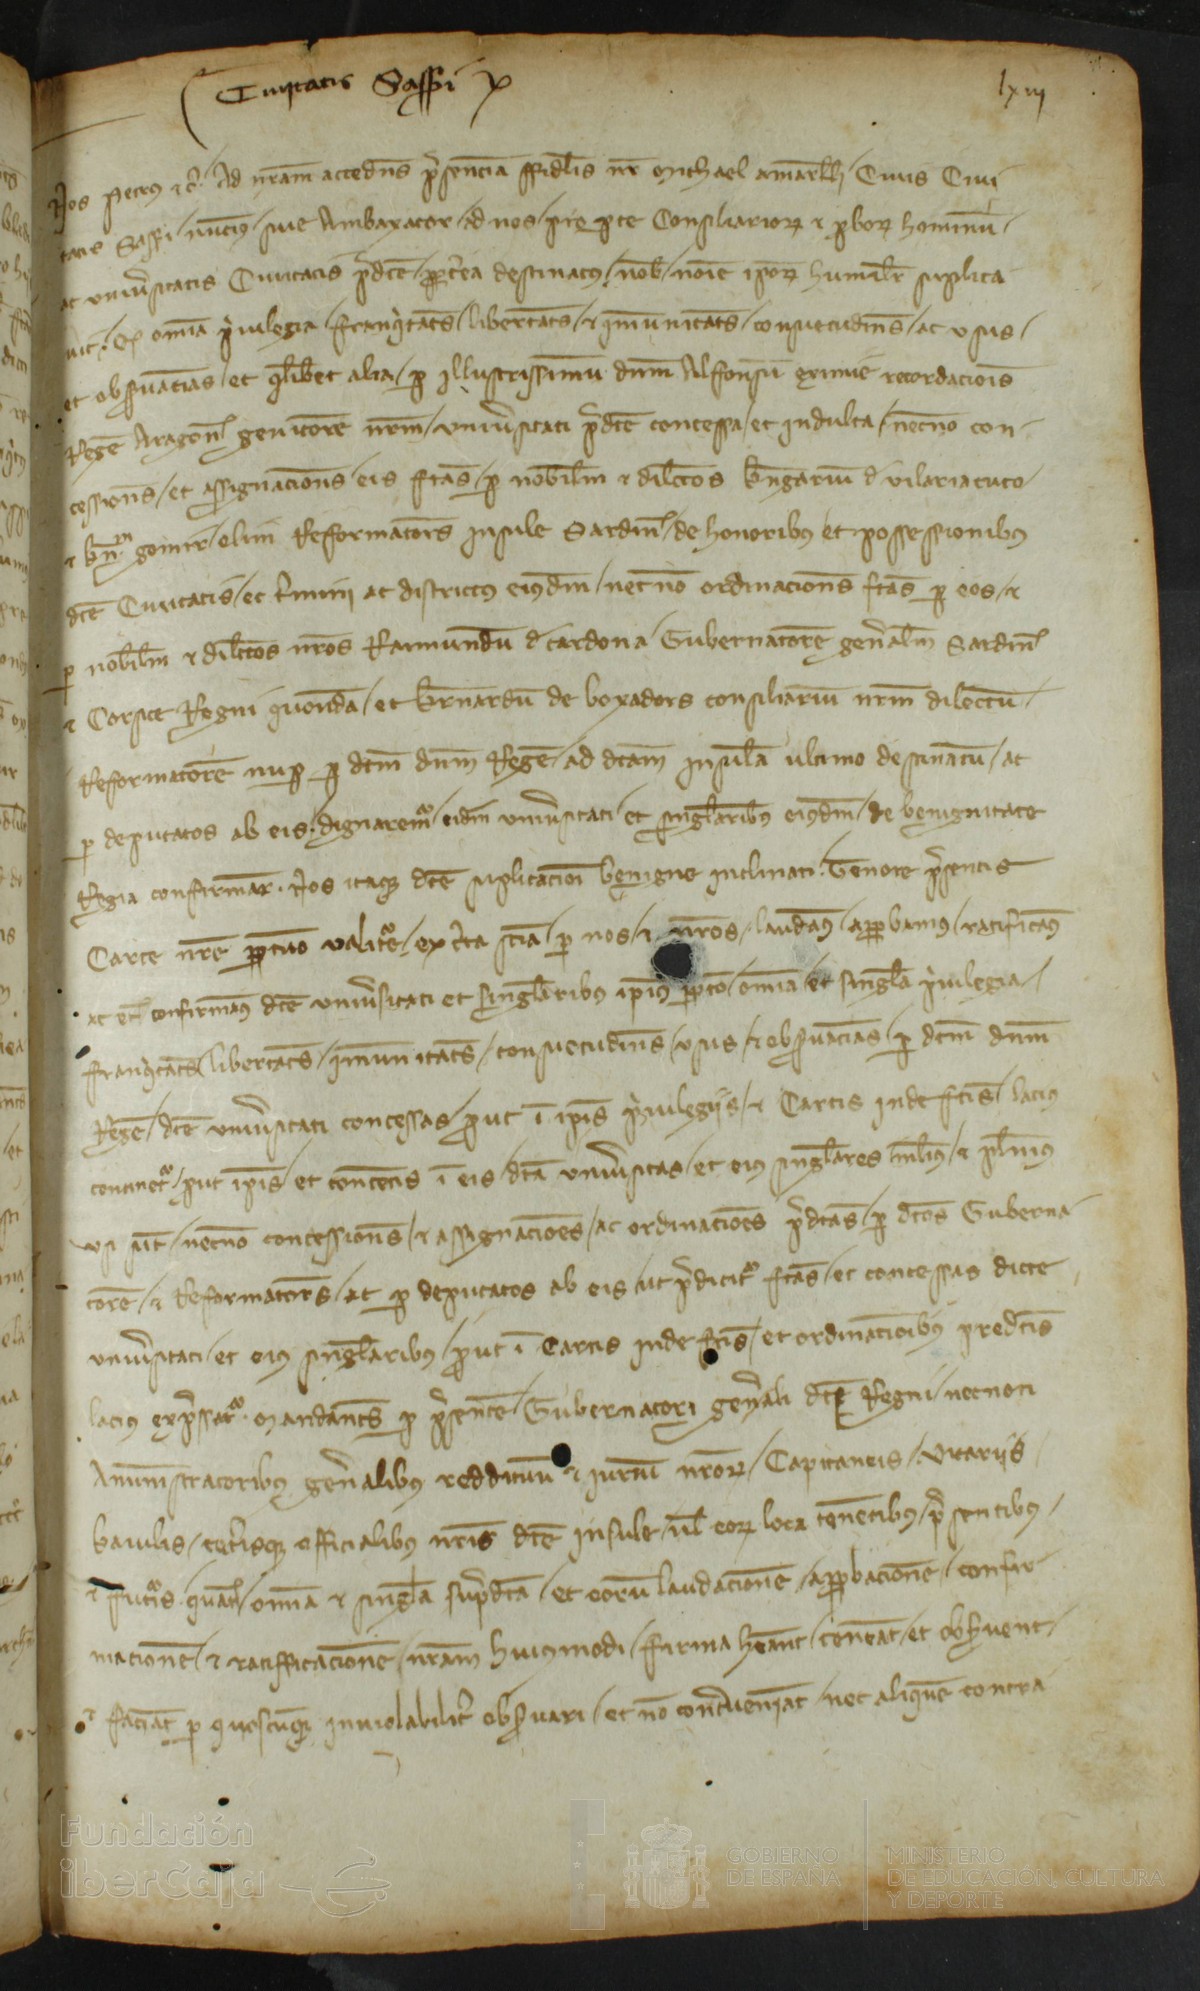 Civitatis Sassari
lxiij
Nos Petrus etc. Ad nram accedens presencia ffidelis nr Michael amarelli / Civis Civi
tatis Sassi / nuncius / sive Ambaxator / ad nos / pro parte Consiliarior & pbor hominu /
ac universitatis Civitatis pdce / propterea destinatus / nob / noie ipor humilr suplica
vit / q omia privilegia / franqtats / libertats / & imunitats / consuetudins / ac usus /
et observancias / et qlibet alia / p Illustrissimu dnm Alffonsu eximie recordacois
Rege Aragon genitore nrm / universitati pdce concessa / et indulta / necno con
cessions / et assignacions eis fcas / p nobilm & dilcos bngariu d vilariacuto
& bn gomir / olim Reformators Insule Sardin / de honoribus et possessionibus
dce Civitatis / et termini ac districtus eiusdm / necno ordinacions fcas p eos / &
p nobilm & dilcos nros Raimundu d cardona Gubernatore generalm Sardin
& Corsice Regni quonda / et bernardu de boxadors consiliariu nrm dilectu /
Reformatore nup p dcm dnm Rege / ad dcam Insula ultimo destinatu / ac
p deputatos ab eis / dignarem / eidm universitati / et singlaribus eiusdm / de benignitate
Regia confirmar. Nos itaq dce suplicacioi benigne inclinati. Tenore psentis
Carte nre ppetuo valitre / ex certa scia / p nos / & nros / laudam / approbamus / ratificam
ac et confirmam dce universitati et singlaribus ipius ppetuo / omia / et singla privilegia /
franqtats / libertats / imunitats / consuetudins / usus / & observancias / p dcm dnm
Rege / dce universitati concessas / prout i ipis privilegiis / & Cartis inde fcis / lacius
continet / put ipis / et contetis i eis / dca universitas / et eius singlares melius / & plenius
usi sut / necno concessions / & assignacioes / ac ordinacioes pdcas / p dcos Guberna
tore / & Reformators / et p deputatos ab eis / ut pdicitr fcas / et concessas dicte
universitati / et eius singlaribus / prout i Cartis inde fcis / et ordinacioibus predcis
lacius expssatr. Mandants p psente / Gubernatori generali dci Regni / necnon
Aministratoribus generalibus reddituu & iuriu nror / Capitaneis / Vicariis
baiulis / ceterisq officialibus nris dce Insule / vl eor loca tenetibus / psentibus /
& futuris. quat / omia & singla supdca / et eoru laudacione / approbacione / confir
macione / & ratifficacione / nram huiusmodi / firma heant / teneat / et observent /
& faciat p quoscuq inviolabilit observari / et no contraveniat / nec aliquem contra
Fundación
iberCaja
GOBIERNO
DE ESPAÑA
MINISTERIO
DE EDUCACIÓN, CULTURA
Y DEPORTE